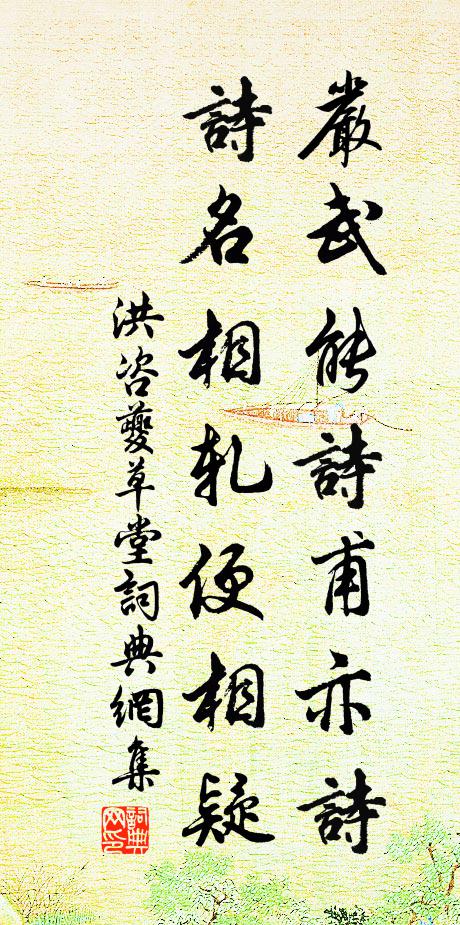 嚴武能詩甫亦詩
詩名相軋便相疑
洪咨夔草堂詞典網集
詞典網印